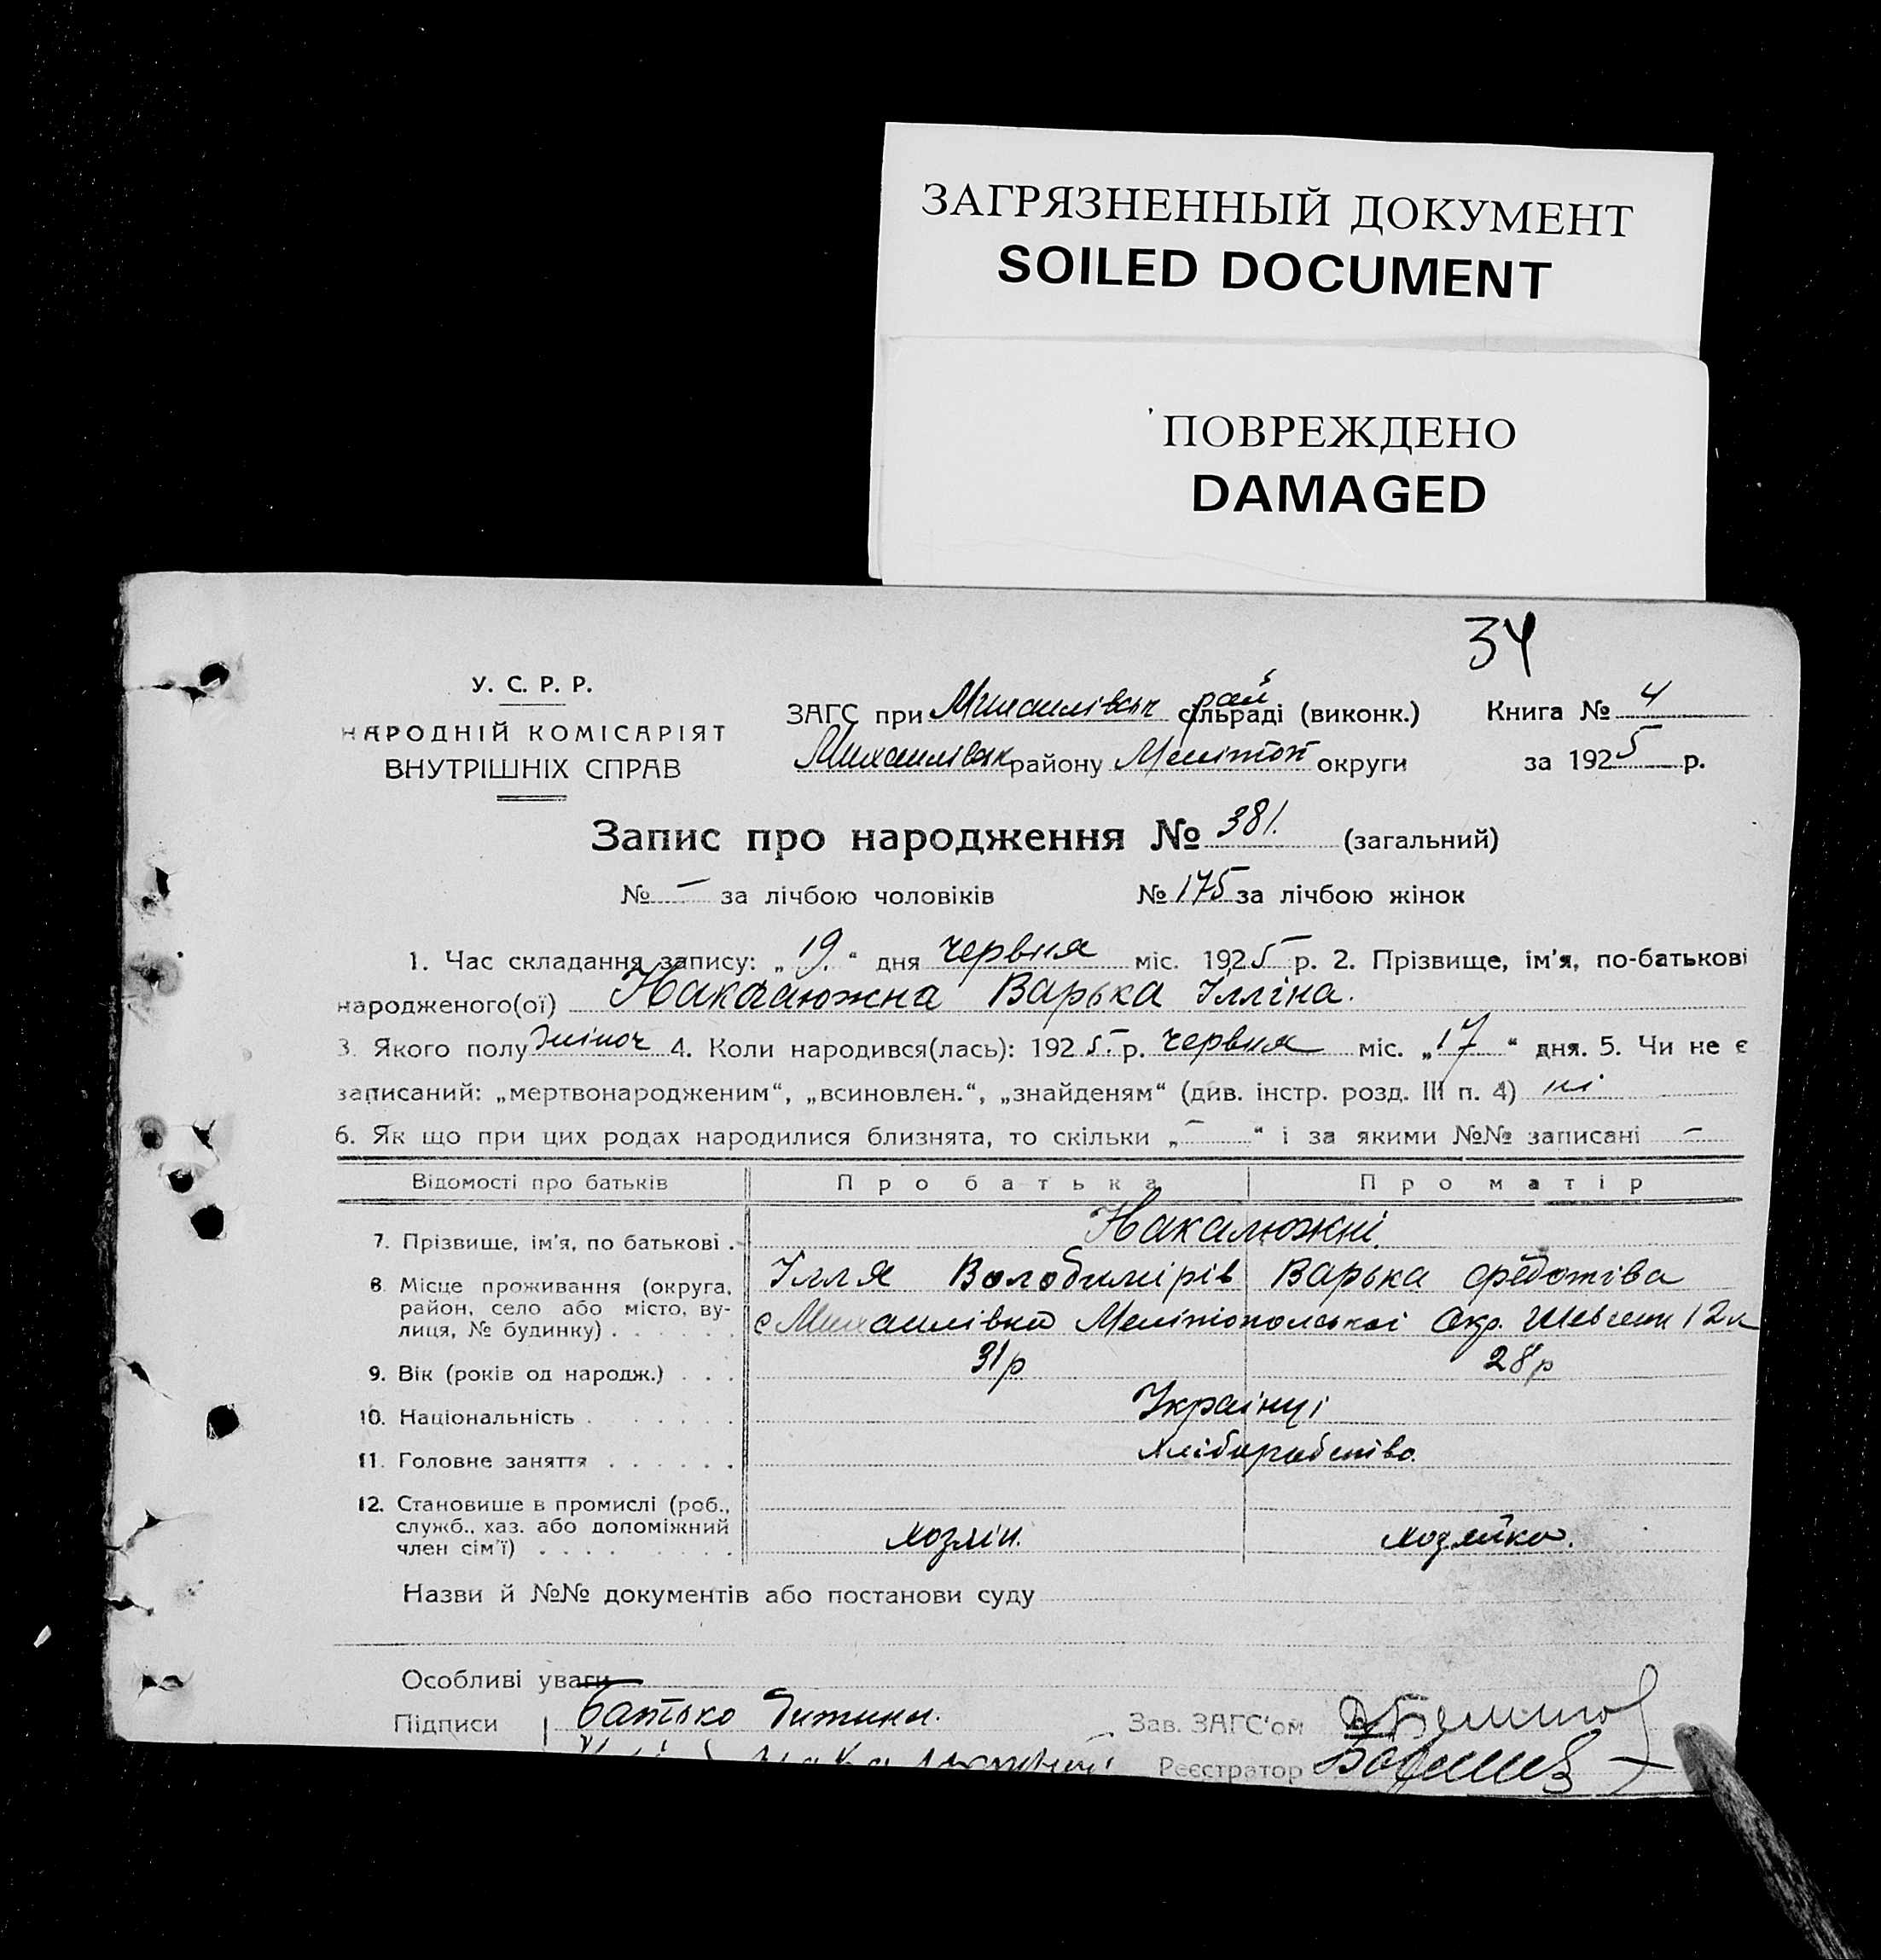 ЗАГРЯЗНЕННЫЙ ДОКУМЕНТ
SOILED DOCUMENT
ПОВРЕЖДЕНО
DAMAGED
34
У. С. Р. Р.
НАРОДНІЙ КОМІСАРІЯТ
ВНУТРІШНІХ СПРАВ
ЗАГС при Михаилівськ рай сільраді (виконк.)
Михаилівськ району Мелітоп округи
Книга № 4
за 1925 р.
Запис про народження № 381. (загальний)
№ – за лічбою чоловіків № 175 за лічбою жінок
1. Час складання запису: „19.“ дня червня міс. 1925 р. 2. Прізвище, ім'я, по-батькові
народженого(ої) Накалюжна Варька Ілліна.
3. Якого полу жіноч 4. Коли народився(лась): 1925. р. червня міс. „17“ дня. 5. Чи не є
записаний: „мертвонародженим“, „всиновлен.“, „знайденям“ (див. інстр. розд. III п. 4) ні
6. Як що при цих родах народилися близнята, то скільки „–“ і за якими №№ записані –
Відомості про батьків Про батька Про матір
7. Прізвище, ім'я, по батькові . Накалюжні.
Ілля Володимірів Варька Федотіва
8. Місце проживання (округа,
район, село або місто, ву-
лиця, № будинку) . . . . . .
с Михаилівка Мелітопольскої Окр. Шевченк 12
9. Вік (років од народж.) . . . 31р 28р
10. Національність . . . . . . . Українці
11. Головне заняття . . . . . . Хліборобство.
12. Становище в промислі (роб.,
служб., хаз. або допоміжний
член сім'ї) . . . . . . . . .
хозяін. хозяйка.
Назви й №№ документів або постанови суду
Особливі уваги
Підписи Батько дитини.
Зав. ЗАГС'ом
Реєстратор